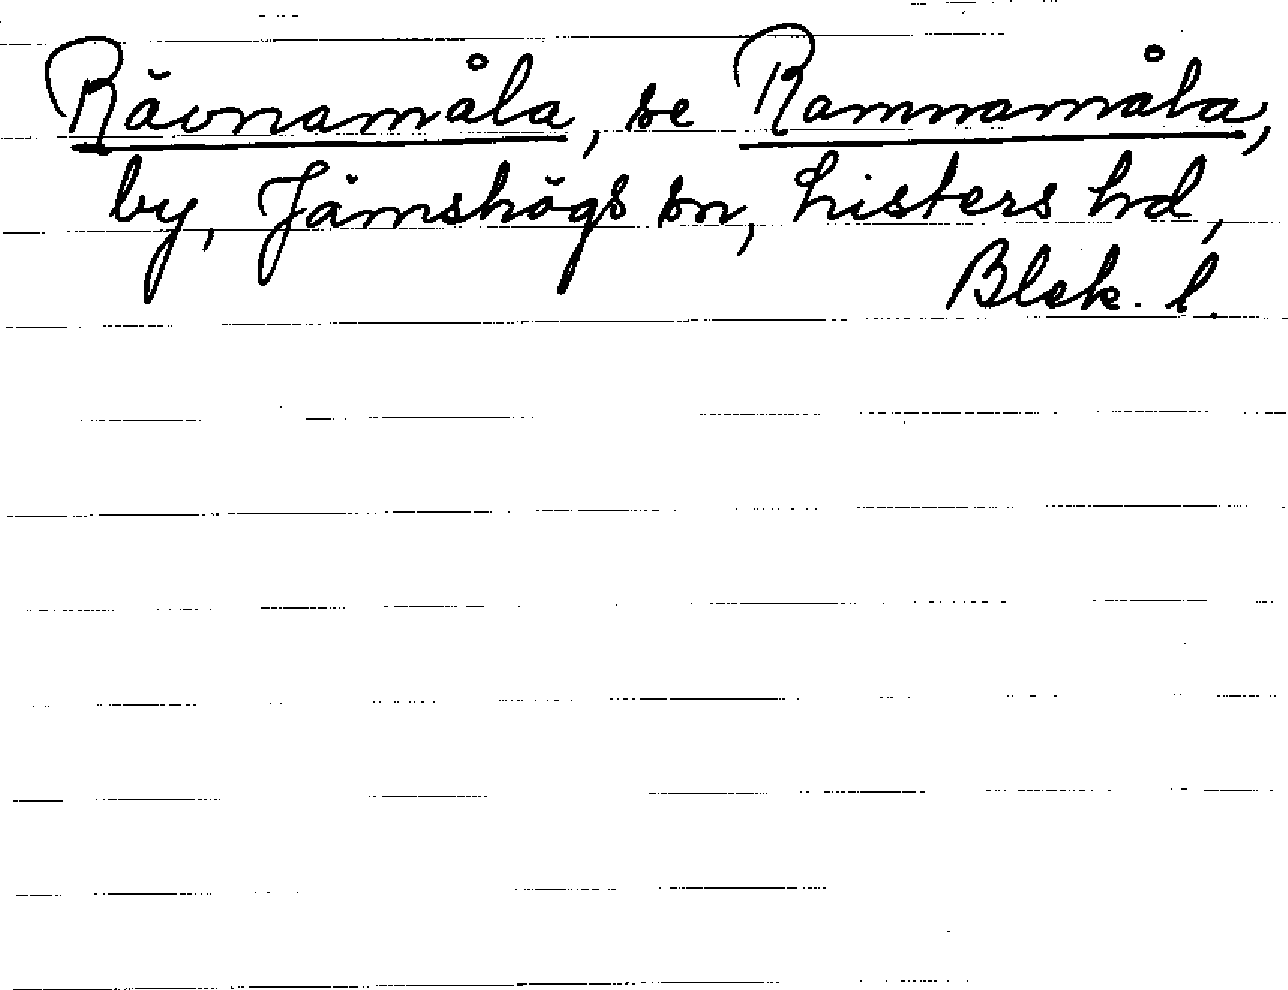 Rävnamåla, se Ramnamåla,
by, Jämshögs sn, Listers hd,
Blek. l.